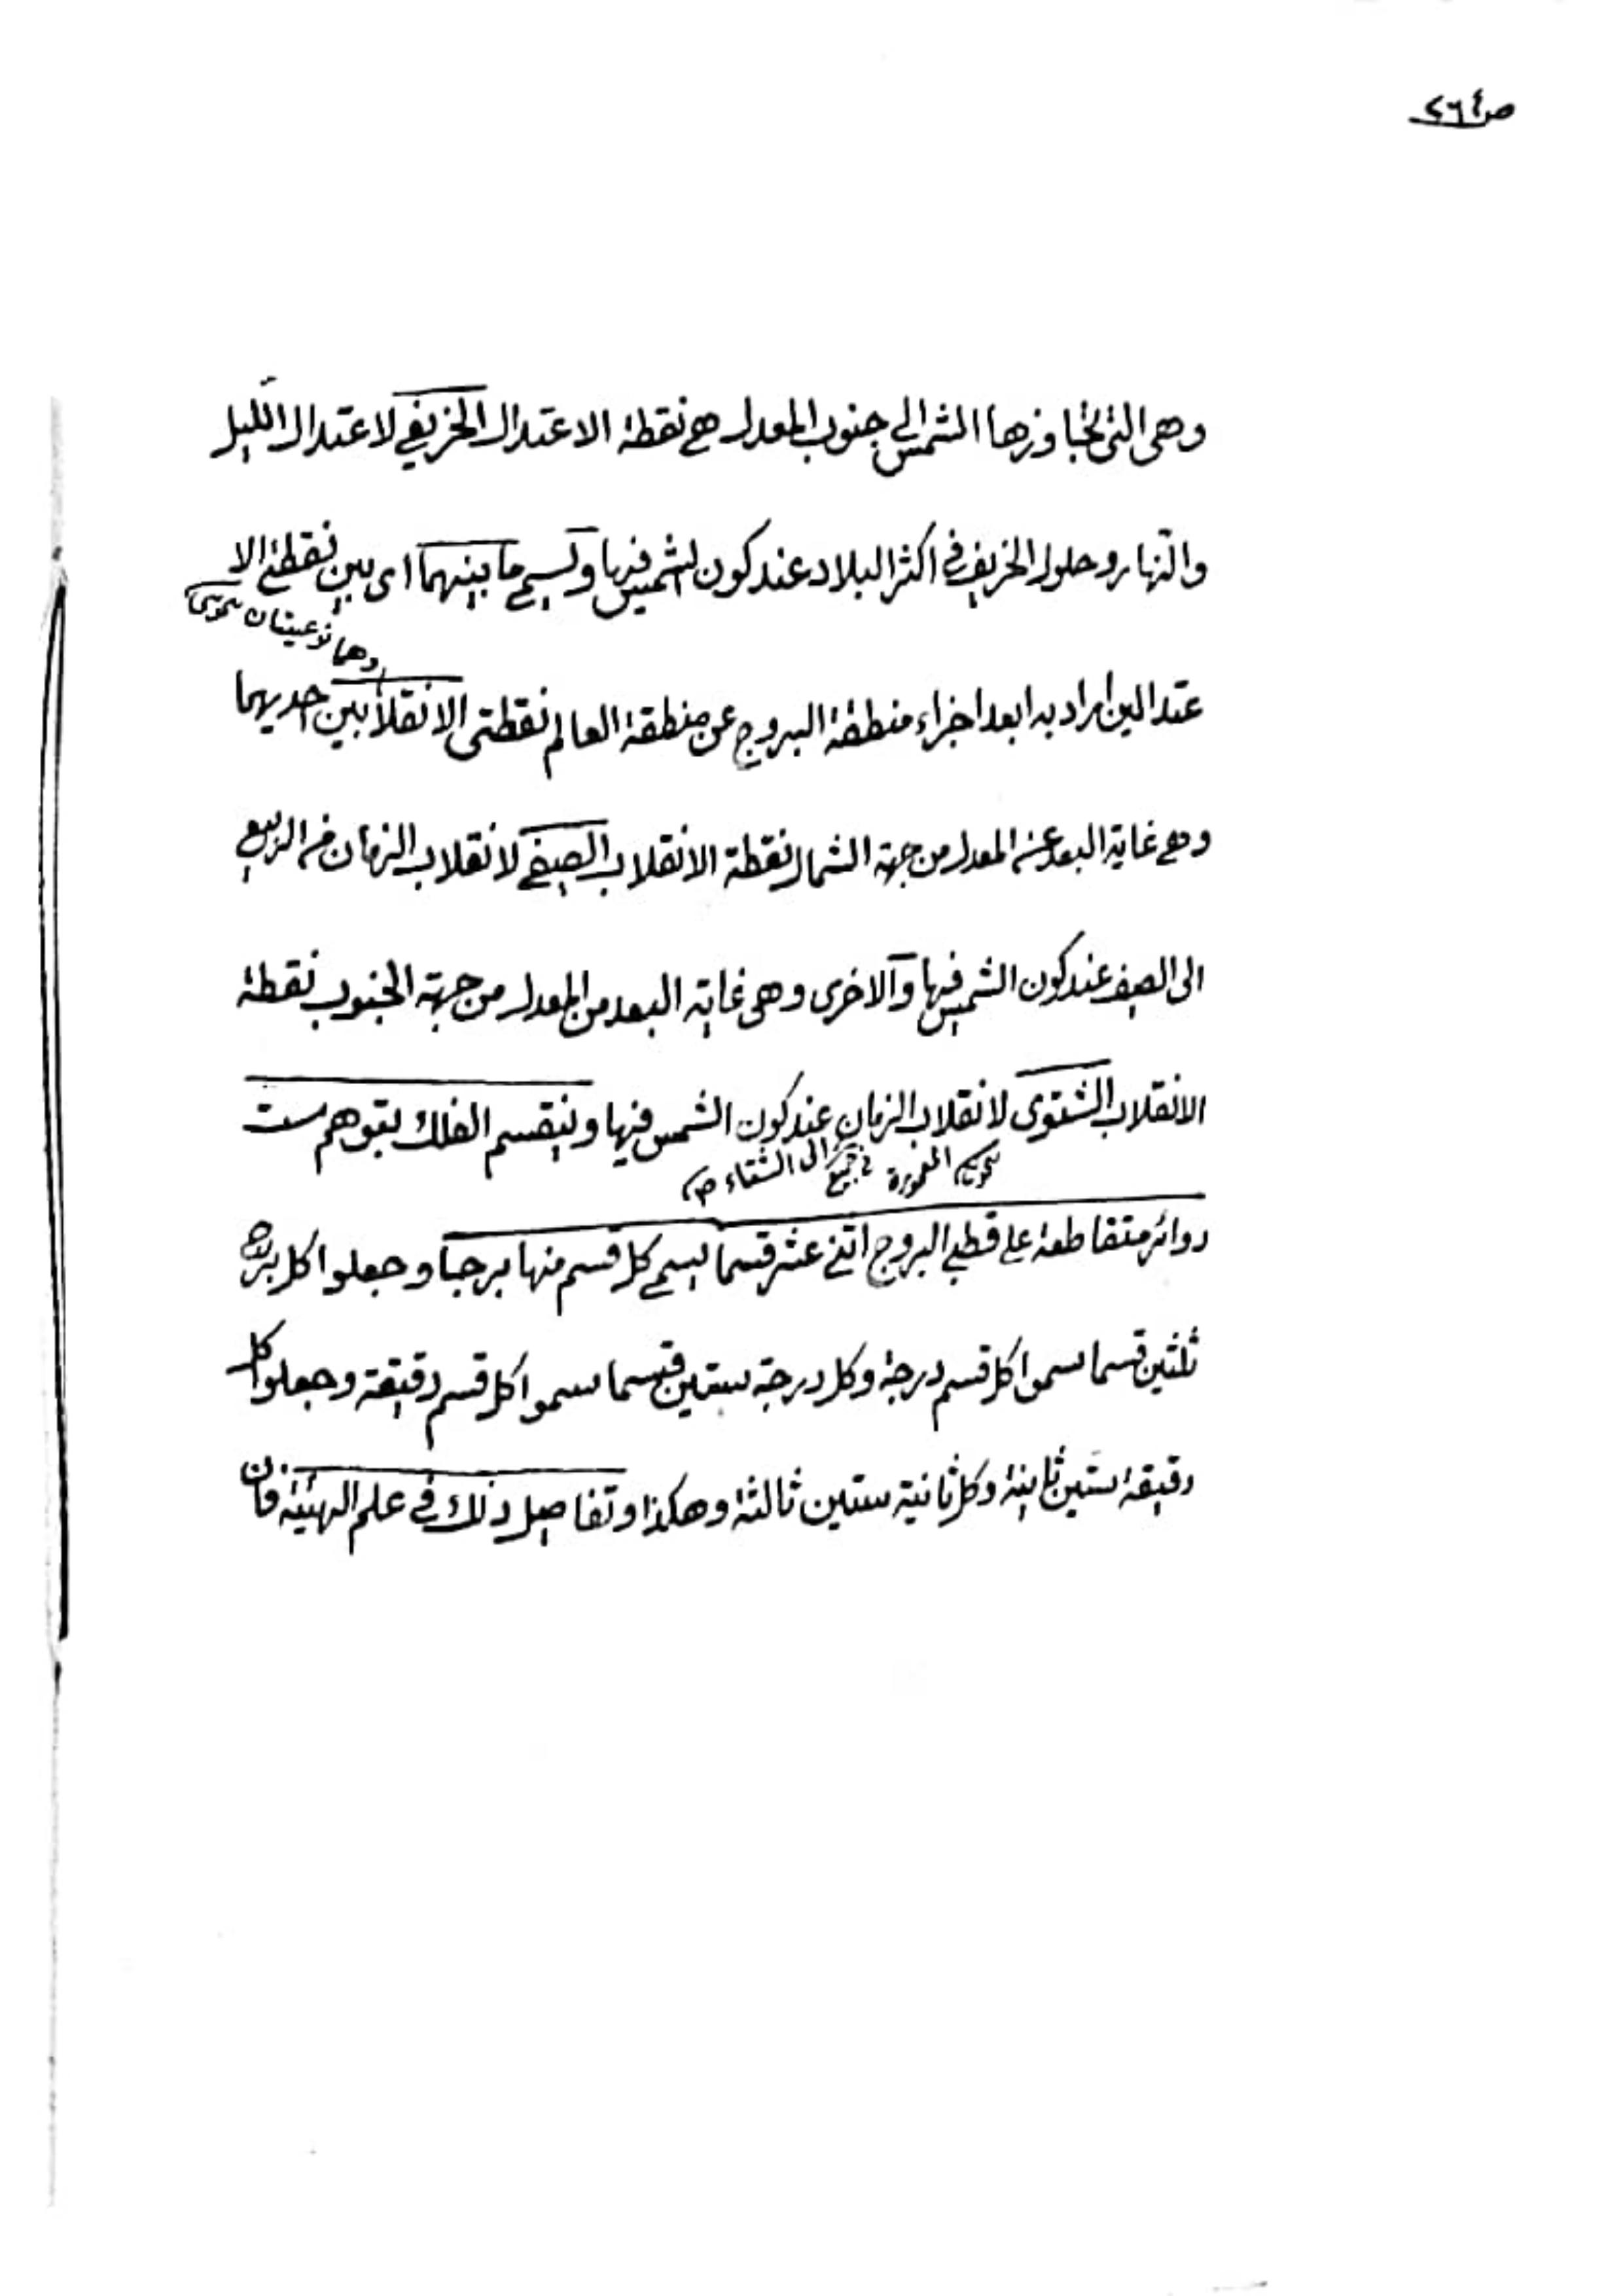 ص٢٦٤
وهى التى تجاوزها الشمس الى جنوب المعدل هى نقطة الاعتدال الخريفى لاعتدال الليل
والنهار وحلول الخريف فى اكثر البلاد عند كون الشمس فيها ويسمى ما بينهما اى بين نقطتى الا
وهما نوعيتان
عتدالين اراد به ابعد اجزاء منطقة البروج عن منطقة العالم نقطتى الانقلابين احديهما
وهى غاية البعد عن المعدل من جهة الشمال نقطة الانقلاب الصيفى لانقلاب الزمان من الربيع
الى الصيف عند كون الشمس فيها والاخرى وهى غاية البعد من المعدل من جهة الجنوب نقطة
الانقلاب الشتوى لانقلاب الزمان عند كون الشمس فيها وينقسم الفلك بتوهم ست
الى الشتاء صح
دوائر متقاطعة على قطبى البروج اثنى عشر قسما يسمى كل قسم منها برجا وجعلوا كل برج
ثلثين قسما سموا كل قسم درجة وكل درجة ستين قسما سموا كل قسم دقيقة وجعلوا كل
دقيقة ستين ثانية وكل ثانية ستين ثالثة وهكذا وتفاصيل ذلك فى علم الهيئة فان